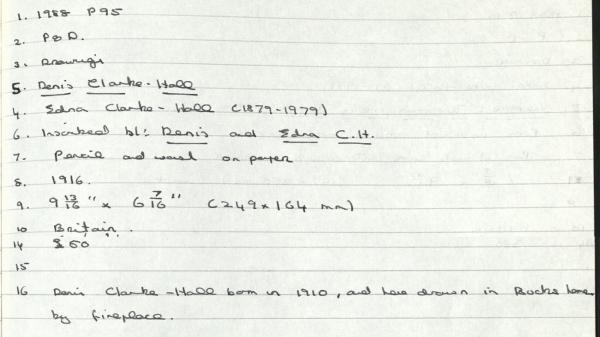 1. 1988 P95
2. P&D.
3. Drawings
5. Denis Clarke-Hall
4. Edna Clarke-Hall (1879-1979)
6. Inscribed bl: Denis and Edna C.H.
7. Pencil and wash on paper
8. 1916.
9. 9 13/16" x 6 7/16" (249 x 164 mm)
10 Britain.
14 £60
15
16 Denis Clarke-Hall born in 1910, and here drawn in Bucks home
by fireplace.